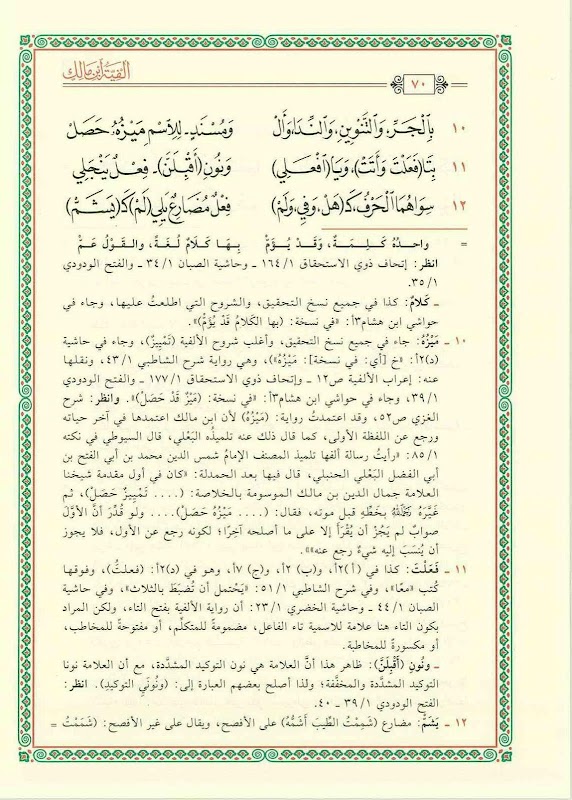 ألفية ابن مالك
٧٠
١٠ بِالْجَرِّ، وَالتَّنْوِينِ، وَالنِّدَا، وَأَلْ وَمُسْنَدٍ - لِلِاسْمِ مَيْزُهُ حَصَلْ
١١ بِتَا (فَعَلْتَ وَأَتَتْ)، وَيَا (افْعَلِي) وَنُونِ (أَقْبِلَنَّ) - فِعْلٌ يَنْجَلِي
١٢ سِوَاهُمَا الْحَرْفُ كَـ(هَلْ، وَفِي، وَلَمْ) فِعْلٌ مُضَارِعٌ يَلِي (لَمْ) كَـ(يَشَمْ)
= واحدُهُ كَلِمَةٌ، وَقَدْ يُؤَمْ بِهَا كَلَامٌ لُغَةً، والقَوْلُ عَمْ
انظر: إتحاف ذوي الاستحقاق ١/ ١٦٤ ـ وحاشية الصبان ١/ ٣٤ ـ والفتح الودودي
١/ ٣٥.
ـ كَلَامٌ: كذا في جميع نسخ التحقيق، والشروح التي اطلعتُ عليها، وجاء في
حواشي ابن هشام٣أ: «في نسخة: (بها الكَلامُ قَدْ يُؤَمْ)».
١٠ ـ مَيْزُهُ: جاء في جميع نسخ التحقيق، وأغلب شروح الألفية (تَمْيِيزٌ)، وجاء في حاشية
(د)٢أ: «خ [أي: في نسخة]: مَيْزُهُ»، وهي رواية شرح الشاطبي ١/ ٤٣، ونقلها
عنه: إعراب الألفية ص١٢ ـ وإتحاف ذوي الاستحقاق ١/ ١٧٧ ـ والفتح الودودي
١/ ٣٩، وجاء في حواشي ابن هشام٣أ: «في نسخة: (مَيْزٌ قَدْ حَصَلْ)». وانظر: شرح
الغزي ص٥٢، وقد اعتمدتُ رواية: (مَيْزُهُ) لأن ابن مالك اعتمدها في آخر حياته
ورجع عن اللفظة الأولى، كما قال ذلك عنه تلميذُه البَعْلي، قال السيوطي في نكته
١/ ٨٥: «رأيتُ رسالة ألفها تلميذ المصنف الإمامُ شمس الدين محمد بن أبي الفتح بن
أبي الفضل البَعْلي الحنبلي، قال فيها بعد الحمدلة: «كان في أول مقدمة شيخنا
العلامة جمال الدين بن مالك الموسومة بالخلاصة: (.... تَمْيِيزٌ حَصَلْ)، ثم
غيَّرَهُ رَحِمَهُ اللهُ بخطِّه قبل موته، فقال: (.... مَيْزُهُ حَصَلْ).... ولو قُدِّرَ أنَّ الأوَّلَ
صوابٌ لم يَجُزْ أن يُقْرَأَ إلا على ما أصلحه آخِرًا؛ لكونه رجع عن الأول، فلا يجوز
أن يُنسَبَ إليه شيءٌ رجع عنه»».
١١ ـ فَعَلْتَ: كذا في (أ)٢أ، و(ب)٢أ، و(ج)٧أ، وهو في (د)٢أ: (فعلتُ)، وفوقها
كُتب «معًا»، وفي شرح الشاطبي ١/ ٥١: «يَحْتمل أن تُضبَطَ بالثلاث»، وفي حاشية
الصبان ١/ ٤٤ ـ وحاشية الخضري ١/ ٢٣: أن رواية الألفية بفتح التاء، ولكن المراد
بكون التاء هنا علامة للاسمية تاء الفاعل، مضمومةً للمتكلِّم، أو مفتوحةً للمخاطب،
أو مكسورةً للمخاطبة.
ـ ونُونِ (أَقْبِلَنَّ): ظاهر هذا أنَّ العلامة هي نون التوكيد المشدَّدة، مع أن العلامة نونا
التوكيد المشدَّدة والمخفَّفة؛ ولذا أصلح بعضهم العبارة إلى: (ونُونَي التوكيدِ). انظر:
الفتح الودودي ١/ ٣٩ ـ ٤٠.
١٢ ـ يَشَمَّ: مضارع (شَمِمْتُ الطِّيبَ أَشَمُّهُ) على الأفصح، ويقال على غير الأفصح: (شَمَمْتُ =